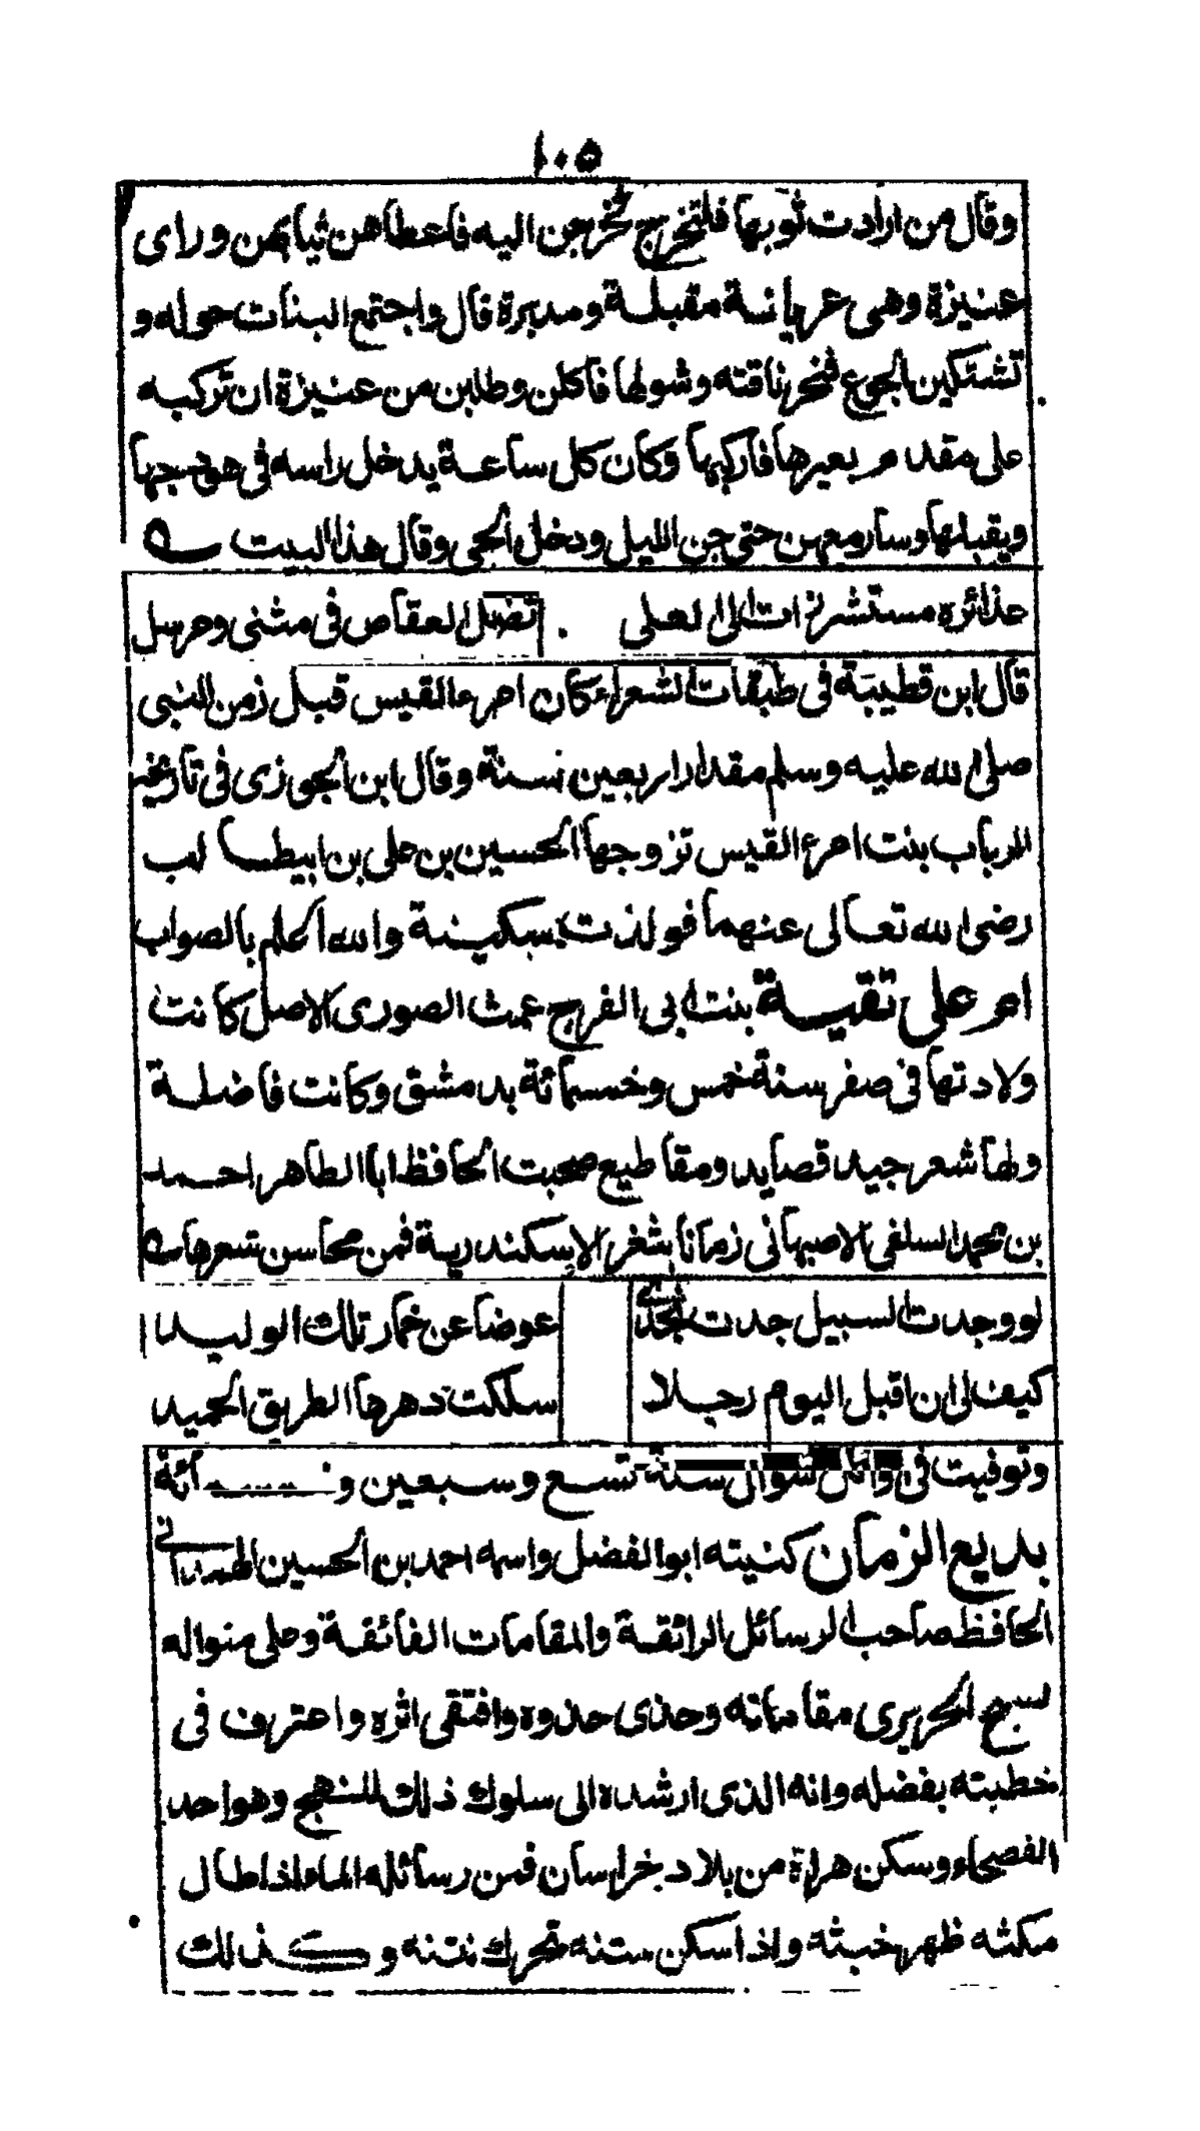 ١٠٥
وقال من ارادت ثوبها فلتخرج فخرجن اليه فاعطاهن ثيابهن وراى
عنيزة وهى عريانة مقبلة ومدبرة قال واجتمع البنات حوله و
تشتكين الجوع فنحر ناقته وشولها فاكلن وطلبن من عنيزة ان تركبه
على مقدم بعيرها فاركبها وكان كل ساعة يدخل راسه فى هودجها
ويقبلها وسار معهن حتى جن الليل ودخل الحى وقال هذا البيت
غذائره مستشزرات الى العلى تضل العقاص فى مثنى ومرسل
قال ابن قطيبة فى طبقات الشعراء كان امرء القيس قبل زمن النبى
صلى الله عليه وسلم مقدار اربعين سنة وقال ابن الجوزى فى تاريخه
الرباب بنت امرء القيس تزوجها الحسين بن على بن ابيطالب
رضى الله تعالى عنهما فولدت سكينة والله اعلم بالصواب
ام على تقية بنت ابى الفرج غيث الصورى الاصل كانت
ولادتها فى صفر سنة خمس وخمسمائة بدمشق وكانت فاضلة
ولها شعر جيد قصايد ومقاطيع صحبت الحافظ ابا الطاهر احمد
بن محمد السلفى الاصبهانى زمانا بثغر الاسكندرية فمن محاسن شعرها
لو وجدت السبيل جدت بخدى عوضا عن خمار تلك الوليد
كيف لى ان اقبل اليوم رجلا سلكت دهرها الطريق الحميد
وتوفيت فى وائل شوال سنة تسع وسبعين وخمسمائة
بديع الزمان كنيته ابو الفضل واسمه احمد بن الحسين الهمدانى
الحافظ صاحب الرسائل الرائقة والمقامات الفائقة وعلى منواله
نسج الحريرى مقاماته وحذى حذوه وافتقى اثره واعترف فى
خطبته بفضله وانه الذى ارشده الى سلوك ذلك المنهج وهو احد
الفصحاء وسكن هراة من بلاد خراسان فمن رسائله الماء اذا طال
مكثه ظهر خبثه واذا سكن متنه تحرك نتنه وكذلك